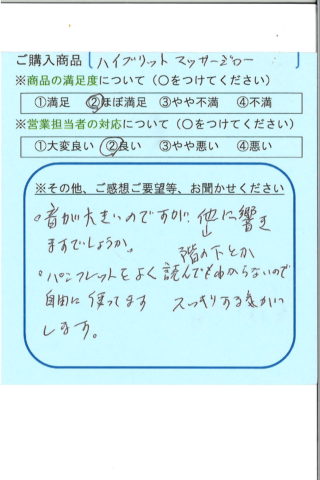 ご購入商品 ハイブリット マッサージロー
※商品の満足度について（○をつけてください）
①満足 ②ほぼ満足 ③やや不満 ④不満
※営業担当者の対応について（○をつけてください）
①大変良い ②良い ③やや悪い ④悪い
※その他、ご感想ご要望等、お聞かせください
。音が大きいのですが、他に響き
ますでしょうか。 階の下とか
。パンフレットをよく読んでもわからないので
自由に使ってます スッキリする気がつ
します。